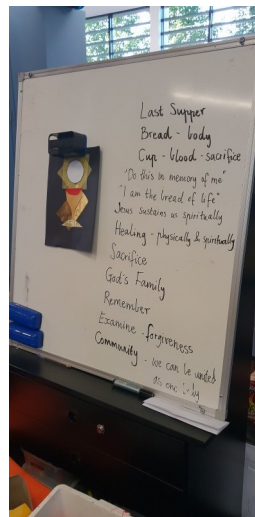 Last Supper
Bread - body
Cup - blood - sacrifice
"Do this in memory of me"
"I am the bread of life"
Jesus sustains us spiritually
Healing - physically & spiritually
Sacrifice
God's Family
Remember
Examine - forgiveness
Community - we can be united
as one